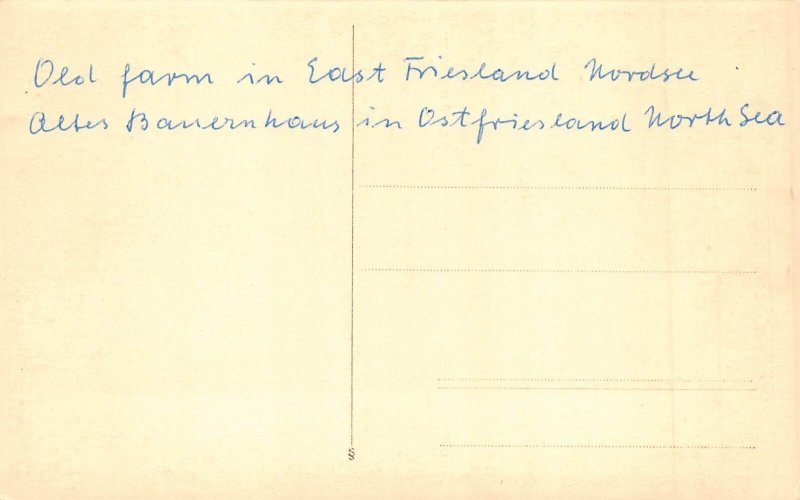 Old farm in East Friesland Nordsee
Altes Bauernhaus in Ostfriesland North Sea
S